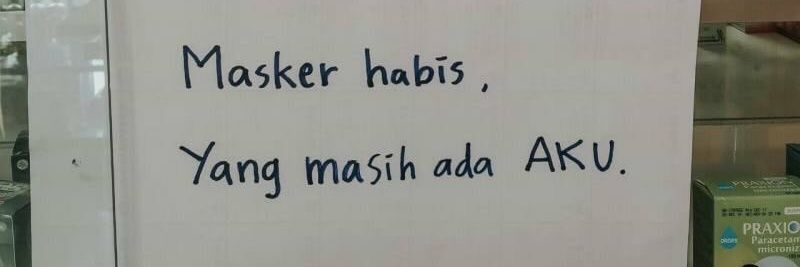 Masker habis,
Yang masih ada AKU.
PRAXION
DROPS
Paracetam
microniz